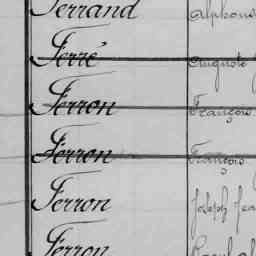 Ferrand Alphons
Ferré Auguste
Ferron François
Ferron François
Ferron Joseph Jea
Ferron